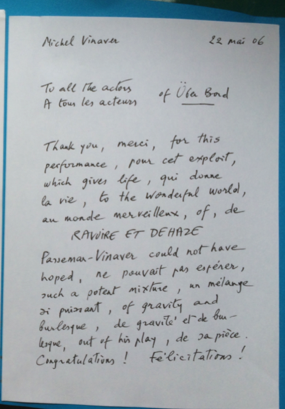 Michel Vinaver 22 mai 06
To all the actors
A tous les acteurs of Über Bord
Thank you, merci, for this
performance, pour cet exploit,
which gives life, qui donne
la vie, to the wonderful world,
au monde merveilleux, of, de
RAVOIRE ET DEHAZE
Passemar-Vinaver could not have
hoped, ne pouvait pas espérer,
such a potent mixture, un mélange
si puissant, of gravity and
burlesque, de gravité et de bur-
lesque, out of his play, de sa pièce.
Congratulations ! Félicitations !